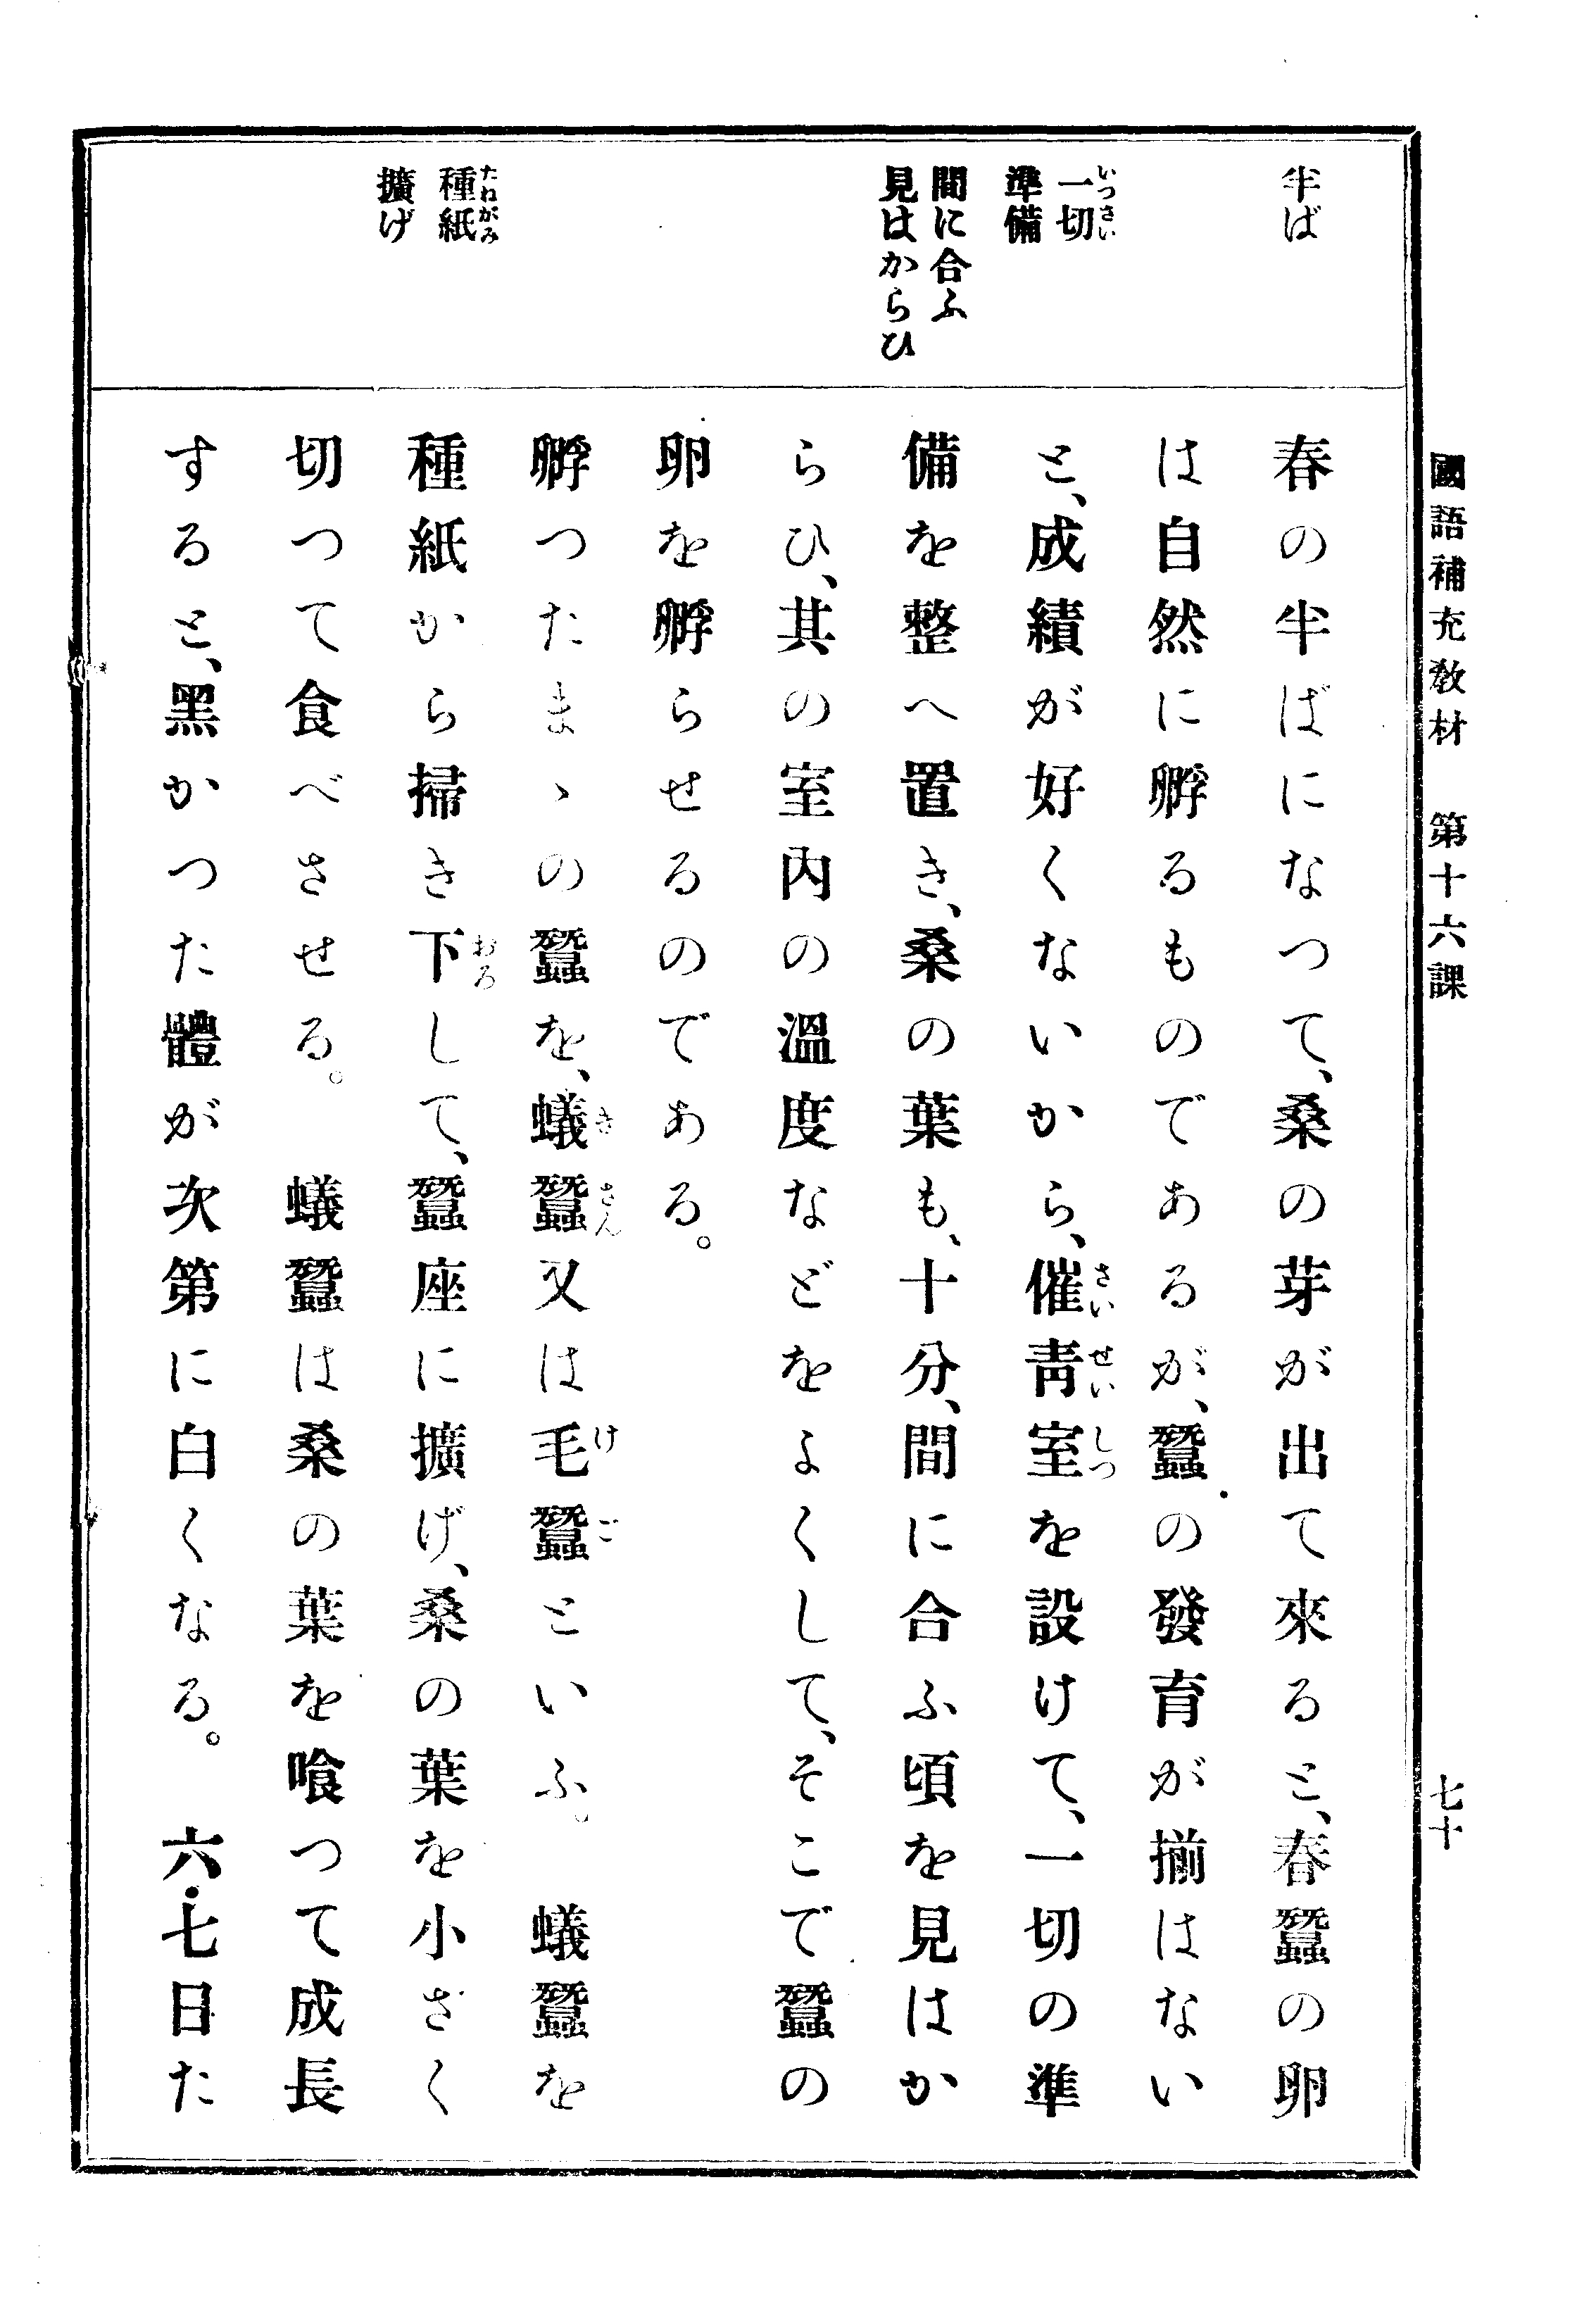 國語補充敎材　第十六課　七十
半ば
一切
準備
間に合ふ
見はからひ
種紙
擴げ
春の半ばになつて、桑の芽が出て來ると、春蠶の卵
は自然に孵るものであるが、蠶の發育が揃はない
と、成績が好くないから、催靑室を設けて、一切の準
備を整へ置き、桑の葉も、十分、間に合ふ頃を見はか
らひ、其の室內の溫度などをよくして、そこで蠶の
卵を孵らせるのである。
孵つたまゝの蠶を、蟻蠶又は毛蠶といふ。　蟻蠶を
種紙から掃き下して、蠶座に擴げ、桑の葉を小さく
切つて食べさせる。　蟻蠶は桑の葉を喰つて成長
すると、黑かつた體が次第に白くなる。　六・七日た